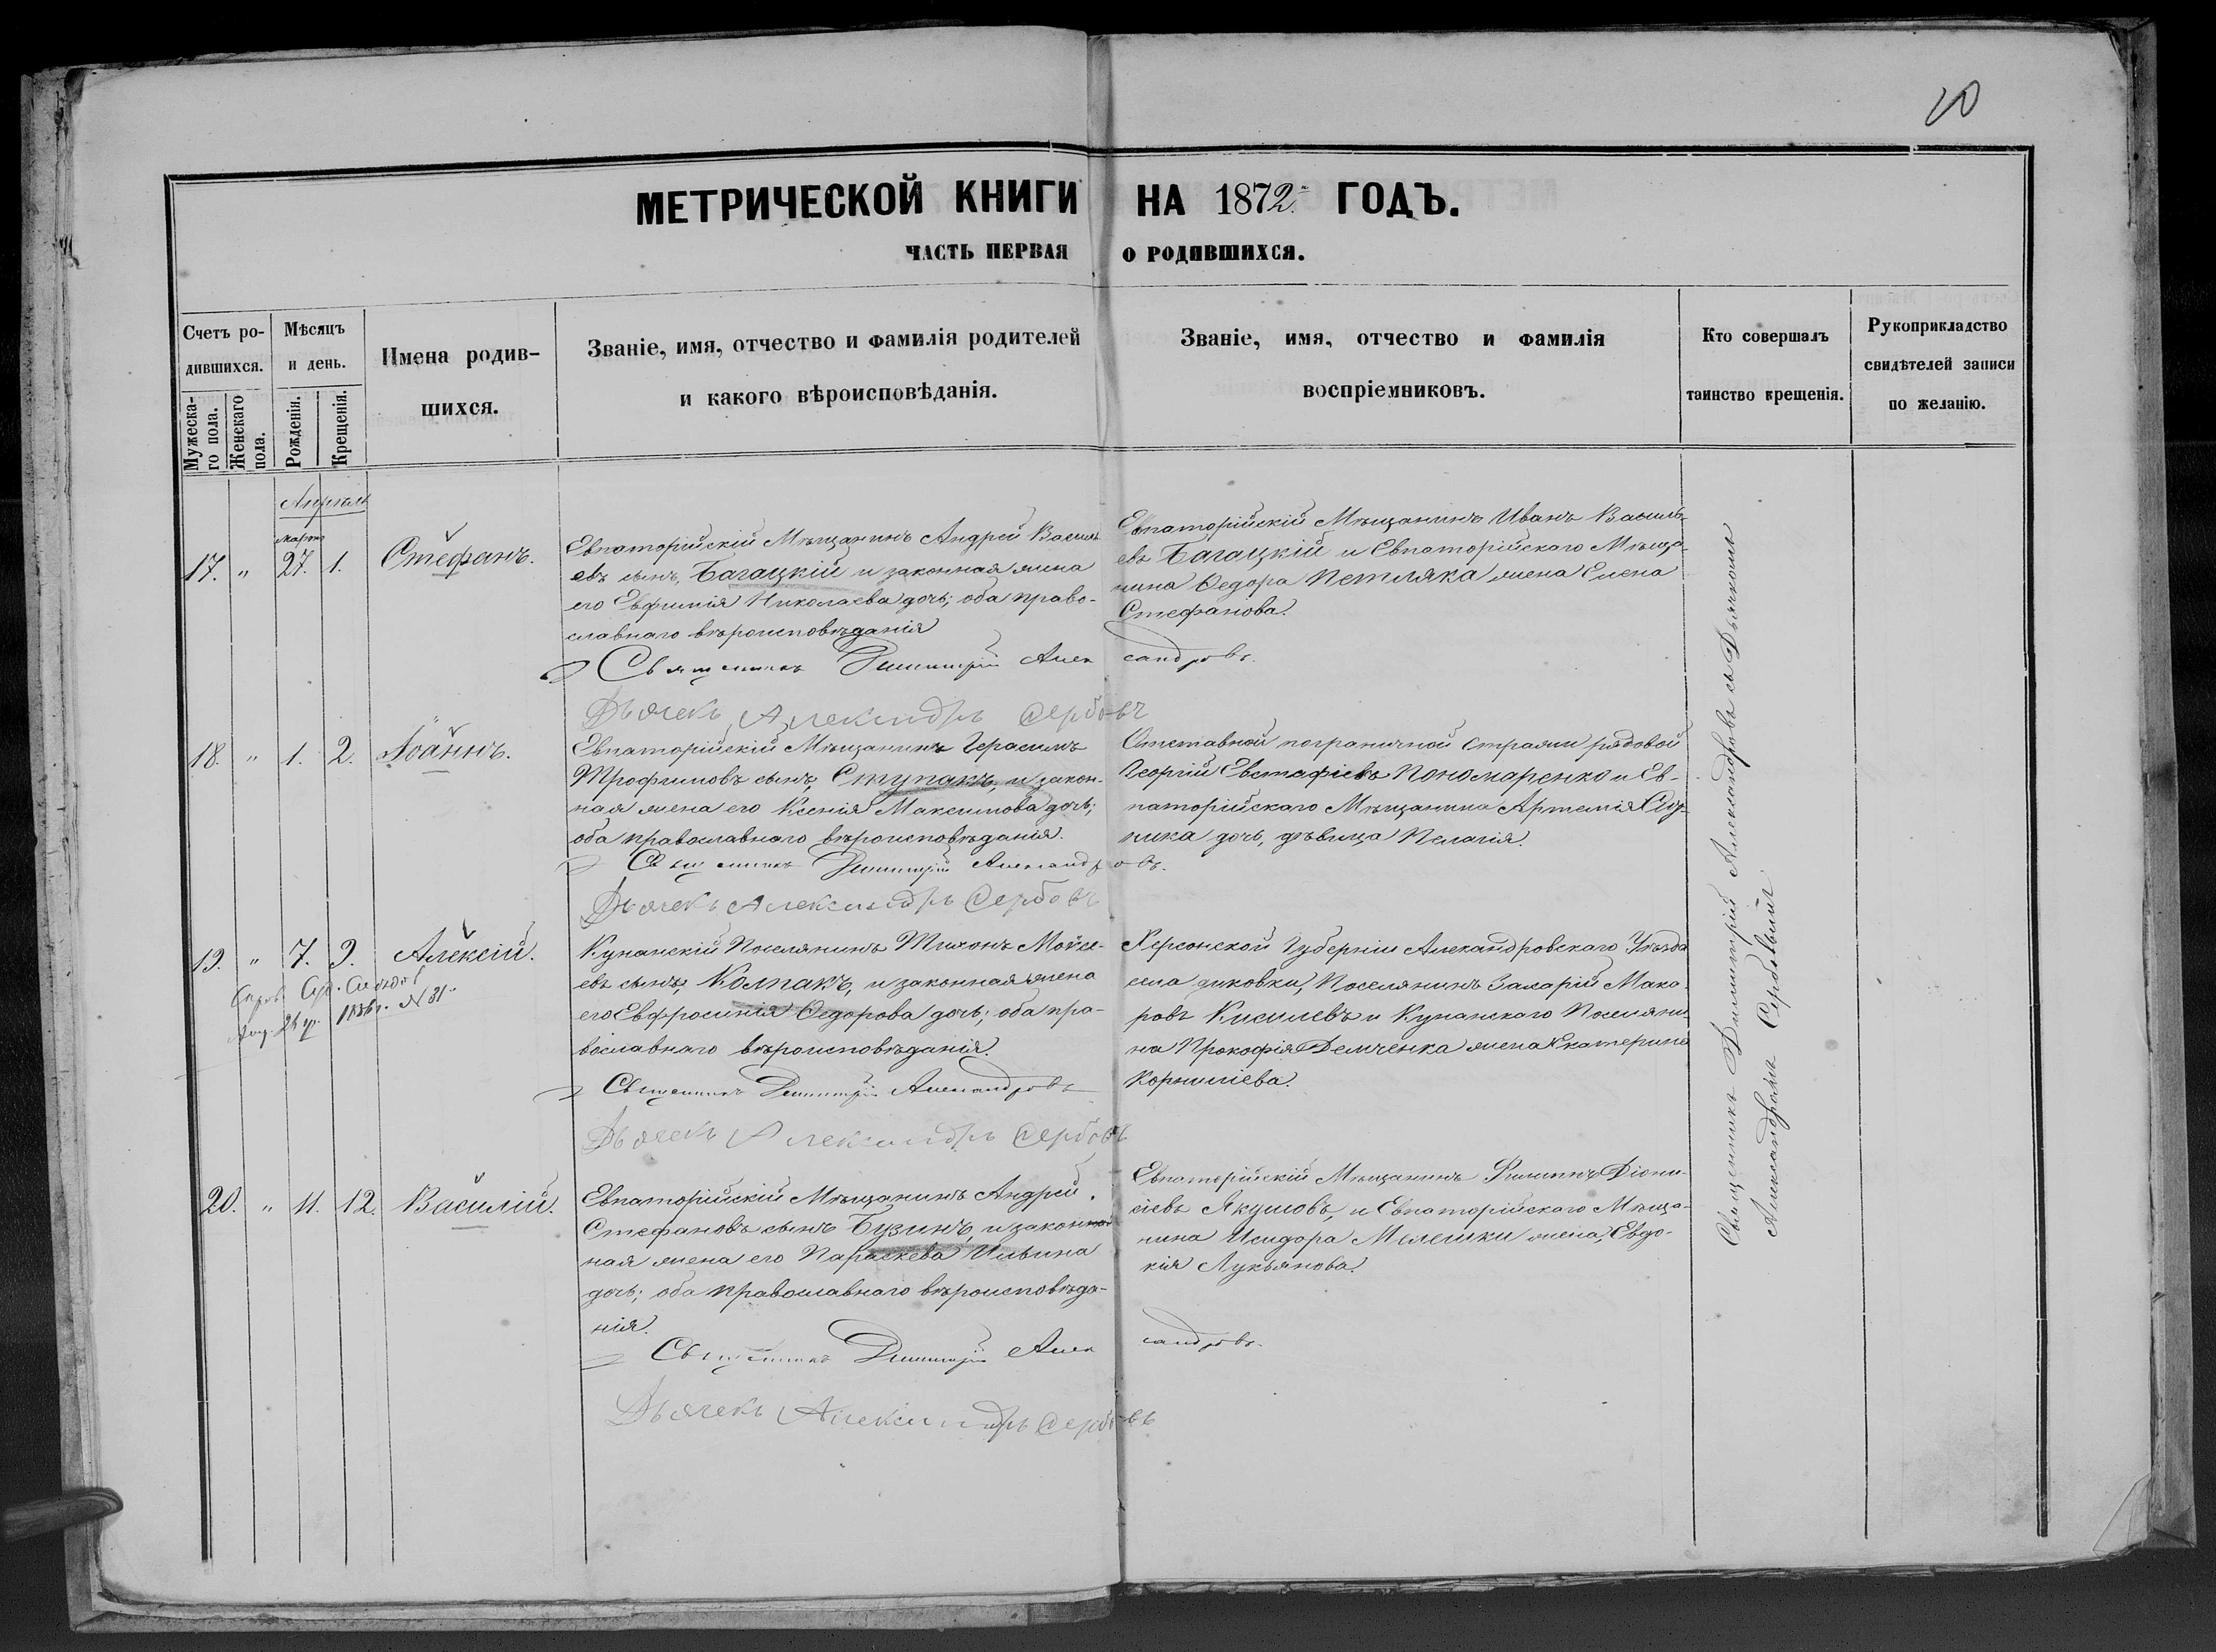 10
МЕТРИЧЕСКОЙ КНИГИ НА 1872 ГОДЪ.
ЧАСТЬ ПЕРВАЯ О РОДИВШИХСЯ.
Счетъ родившихся.
Мужескаго пола.
Женскаго пола.
Мѣсяцъ и день.
Рожденія.
Крещенія.
Имена родив-
шихся.
Званіе, имя, отчество и фамилія родителей
и какого вѣроисповѣданія.
Званіе, имя, отчество и фамилія
воспріемниковъ.
Кто совершалъ
таинство крещенія.
Рукоприкладство
свидѣтелей записи
по желанію.
Апрѣль
Марта
17. " 27. 1. Стефанъ.
Евпаторійскій Мѣщанинъ Андрей Василь-
евъ сынъ, Багацкій и законная жена
его Евфимія Николаева дочь; оба право-
славнаго вѣроисповѣданія
Евпаторійскій Мѣщанинъ Иванъ Василь-
евъ Багацкій и Евпаторійскаго Мѣща-
нина Ѳедора Петляка жена Елена
Стефанова.
Священникъ Димитрій Александровъ.
Дьячекъ Александръ Сербовъ
18. " 1. 2. Іоаннъ.
Евпаторійскій Мѣщанинъ Герасимъ
Трофимовъ сынъ, Ступакъ, и закон-
ная жена его Ксенія Максимова дочь;
оба православнаго вѣроисповѣданія.
Отставной пограничной стражи рядовой
Георгій Евстафіевъ Пономаренко и Ев-
паторійскаго Мѣщанина Артемія
дочь, дѣвица Пелагія.
Священникъ Димитрій Александровъ.
Дьячекъ Александръ Сербовъ
19. " 7. 9. Алексій.
1886 г. N 31
Кунанскій Поселянинъ Тихонъ Мойсе-
евъ сынъ, Колпакъ, и законная жена
его Евфросинія Ѳедорова дочь; оба пра-
вославнаго вѣроисповѣданія.
Херсонской Губерніи Александровскаго Уѣзда
села Поселянинъ Захарій Мака-
ровъ Кисилевъ и Кунанскаго Поселяни-
на Прокофія Демченка жена Екатерина
Корниліева.
Священникъ Димитрій Александровъ
Дьячекъ Александръ Сербовъ
20. " 11. 12. Василій.
Евпаторійскій Мѣщанинъ Андрей
Стефановъ сынъ Бузинъ, и закон-
ная жена его Параскева Ильина
дочь; оба православнаго вѣроисповѣда-
нія.
Евпаторійскій Мѣщанинъ Филиппъ Діони-
сіевъ Якушовъ, и Евпаторійскаго Мѣща-
нина Исидора Мелешки жена, Евдо-
кія Лукьянова.
Священникъ Димитрій Александровъ.
Дьячекъ Александръ Сербовъ
Священникъ Димитрій Александровъ съ Дьячкомъ
Александромъ Сербовымъ